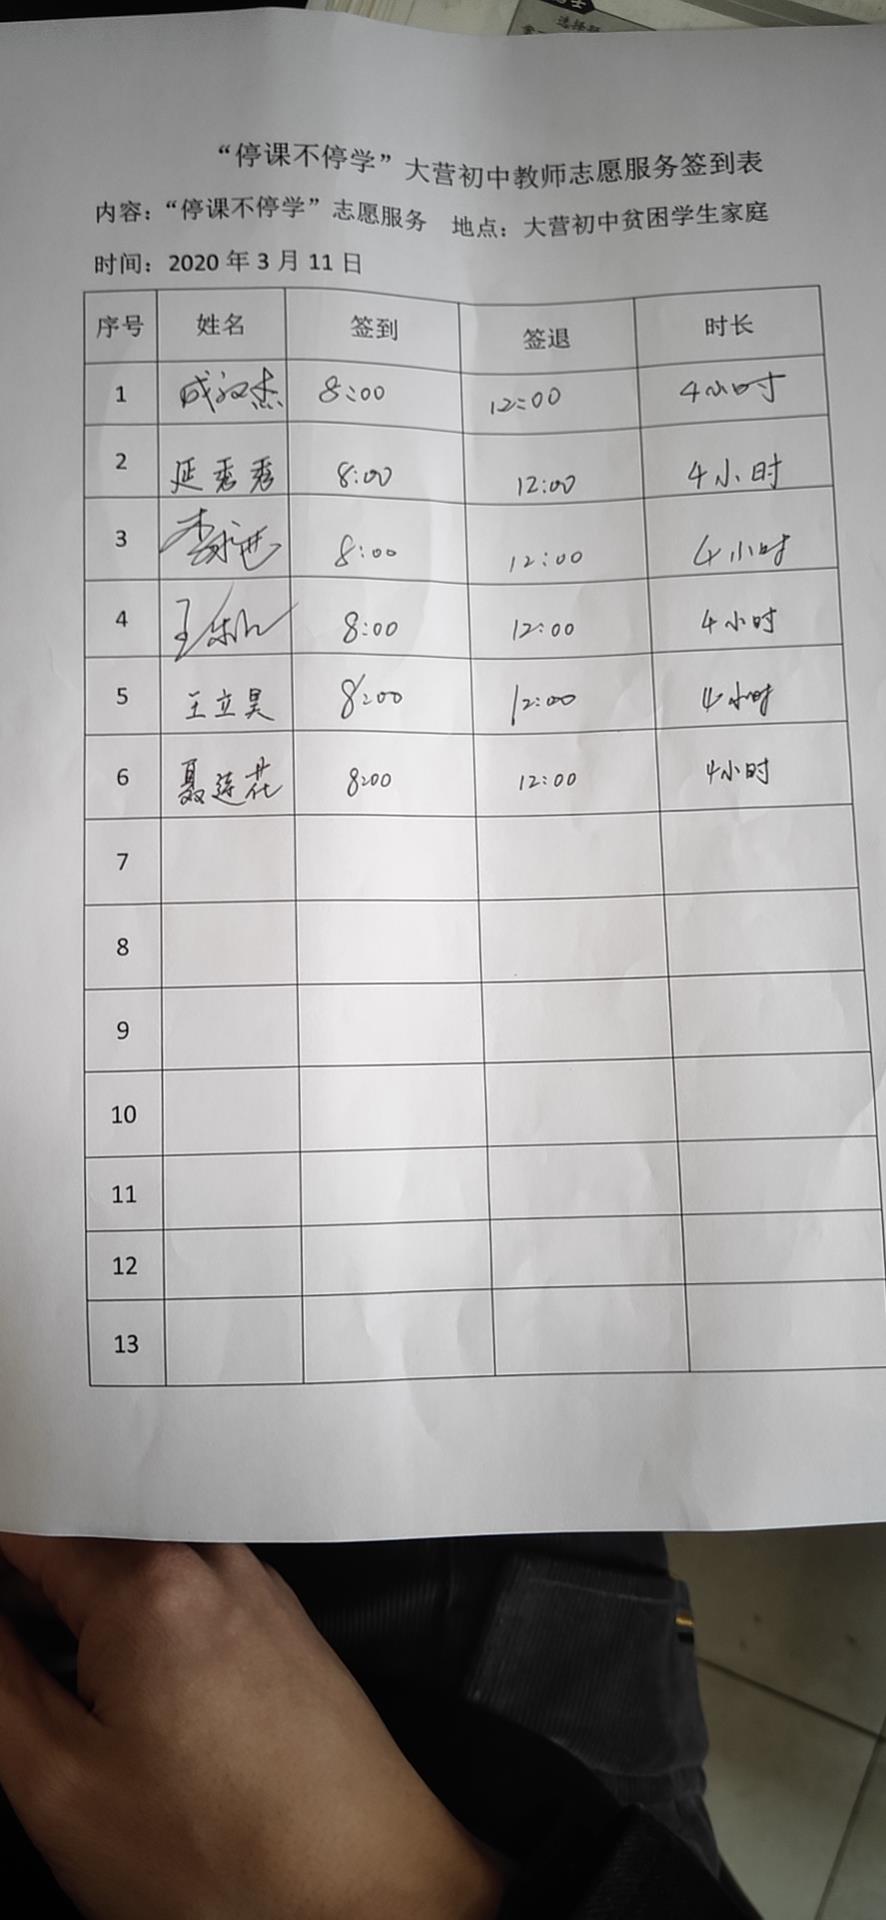 选择题
“停课不停学”大营初中教师志愿服务签到表
内容：“停课不停学”志愿服务 地点：大营初中贫困学生家庭
时间：2020年3月11日
序号 姓名 签到 签退 时长
1 成汉杰 8:00 12:00 4小时
2 延秀秀 8:00 12:00 4小时
3 李 8:00 12:00 4小时
4 王 8:00 12:00 4小时
5 王立昊 8:00 12:00 4小时
6 聂莲花 8:00 12:00 4小时
7
8
9
10
11
12
13